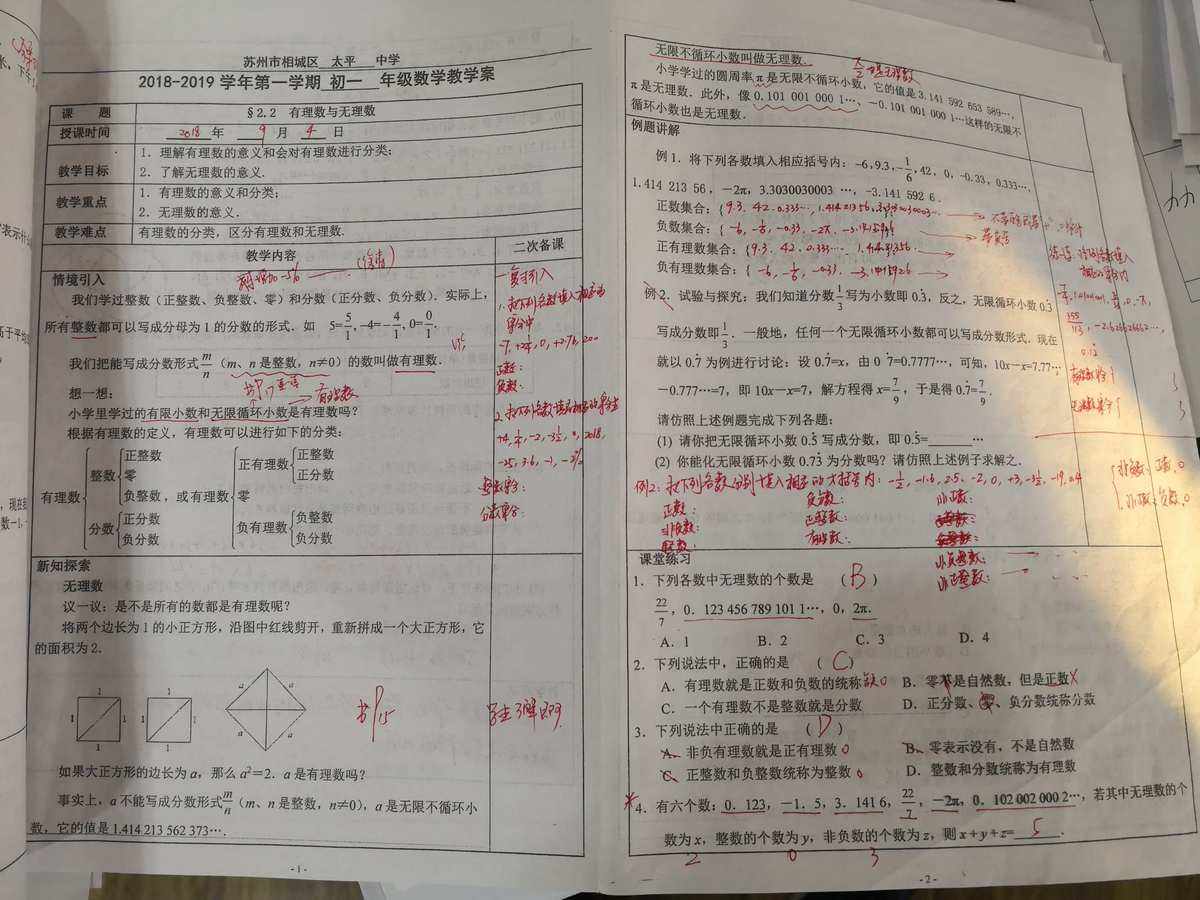 苏州市相城区 太平 中学
2018-2019 学年第一学期 初一 年级数学教学案
课 题 §2.2 有理数与无理数
授课时间 2018 年 9 月 4 日
教学目标 1. 理解有理数的意义和会对有理数进行分类;
2. 了解无理数的意义.
教学重点 1. 有理数的意义和分类;
2. 无理数的意义.
教学难点 有理数的分类,区分有理数和无理数.
教学内容 二次备课
情境引入
我们学过整数(正整数、负整数、零)和分数(正分数、负分数). 实际上,
所有整数都可以写成分母为 1 的分数的形式. 如 5=5/1, -4=-4/1, 0=0/1,
我们把能写成分数形式 m/n (m、n 是整数, n≠0) 的数叫做有理数.
想一想:
有理数
小学里学过的有限小数和无限循环小数是有理数吗?
根据有理数的定义,有理数可以进行如下的分类:
有理数 整数 正整数 零 负整数 分数 正分数 负分数 ,或有理数 正有理数 正整数 正分数 零 负有理数 负整数 负分数
一 复习引入
-7, +2/4, 0, +2.76, 200
正数:
负数:
+4, 1/4, -2, -3½, 0, 2018,
分数集合:
新知探索
无理数
议一议:是不是所有的数都是有理数呢?
将两个边长为 1 的小正方形,沿图中红线剪开,重新拼成一个大正方形,它
的面积为 2.
1 1 1 1 1 1
a a a a
书P15
学生了解即可
如果大正方形的边长为 a,那么 a²=2. a 是有理数吗?
事实上,a 不能写成分数形式 m/n (m、n 是整数, n≠0), a 是无限不循环小
数,它的值是 1.414 213 562 373….
- 1 -
无限不循环小数叫做无理数.
小学学过的圆周率 π 是无限不循环小数,它的值是 3.141 592 653 589…,
π 是无理数. 此外,像 0.101 001 000 1…、-0.101 001 000 1…这样的无限不
循环小数也是无理数.
例题讲解
例 1. 将下列各数填入相应括号内: -6, 9.3, -1/6, 42, 0, -0.33, 0.333…,
1.414 213 56, -2π, 3.3030030003 …, -3.141 592 6.
正数集合:{ 9.3, 42, 0.333…, 1.41421356, 3.3030030003…
负数集合:{ -6, -1/6, -0.33, -2π, -3.1415926
正有理数集合:{ 9.3, 42, 0.333…, 1.41421356.
负有理数集合:{ -6, -1/6, -0.33, -3.1415926
例 2. 试验与探究:我们知道分数 1/3 写为小数即 0.3̇, 反之,无限循环小数 0.3̇
写成分数即 1/3. 一般地,任何一个无限循环小数都可以写成分数形式. 现在
就以 0.7̇ 为例进行讨论:设 0.7̇=x, 由 0.7̇=0.7777…, 可知, 10x-x=7.77…
-0.777…=7, 即 10x-x=7, 解方程得 x=7/9, 于是得 0.7̇=7/9.
请仿照上述例题完成下列各题:
(1) 请你把无限循环小数 0.5̇ 写成分数,即 0.5̇=______…
(2) 你能化无限循环小数 0.7̇3̇ 为分数吗?请仿照上述例子求解之.
例2: 把下列各数分别填入相应的大括号内: -½, -1.6, 2.5, -2, 0, +3, -3½, -19, 0.4
正数: 负数: 非正数:
非负数: 正整数:
整数: 有理数:
非负整数:
非正整数:
非负数: 正数, 0
非正数: 负数, 0
课堂练习
1. 下列各数中无理数的个数是 ( B )
22/7, 0. 123 456 789 101 1…, 0, 2π.
A. 1 B. 2 C. 3 D. 4
2. 下列说法中,正确的是 ( C )
A. 有理数就是正数和负数的统称 B. 零不是自然数,但是正数
C. 一个有理数不是整数就是分数 D. 正分数、零、负分数统称分数
3. 下列说法中正确的是 ( D )
A. 非负有理数就是正有理数 0 B. 零表示没有,不是自然数
C. 正整数和负整数统称为整数 0 D. 整数和分数统称为有理数
4. 有六个数: 0. 123, -1. 5, 3. 141 6, 22/7, -2π, 0. 102 002 000 2…, 若其中无理数的个
数为 x, 整数的个数为 y, 非负数的个数为 z, 则 x+y+z= 5 .
2 0 3
- 2 -